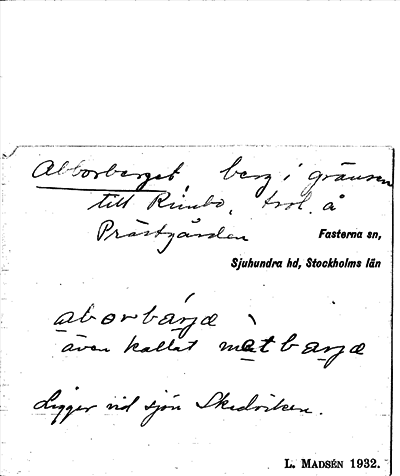 Abborberget, berg i gränsen
till Rimbo, trol. å
Prästgården
Fasterna sn,
Sjuhundra hd, Stockholms län
aborbärjæ
även kallat matbärjæ
Ligger vid sjön Skedviken.
L. MADSÉN 1932.